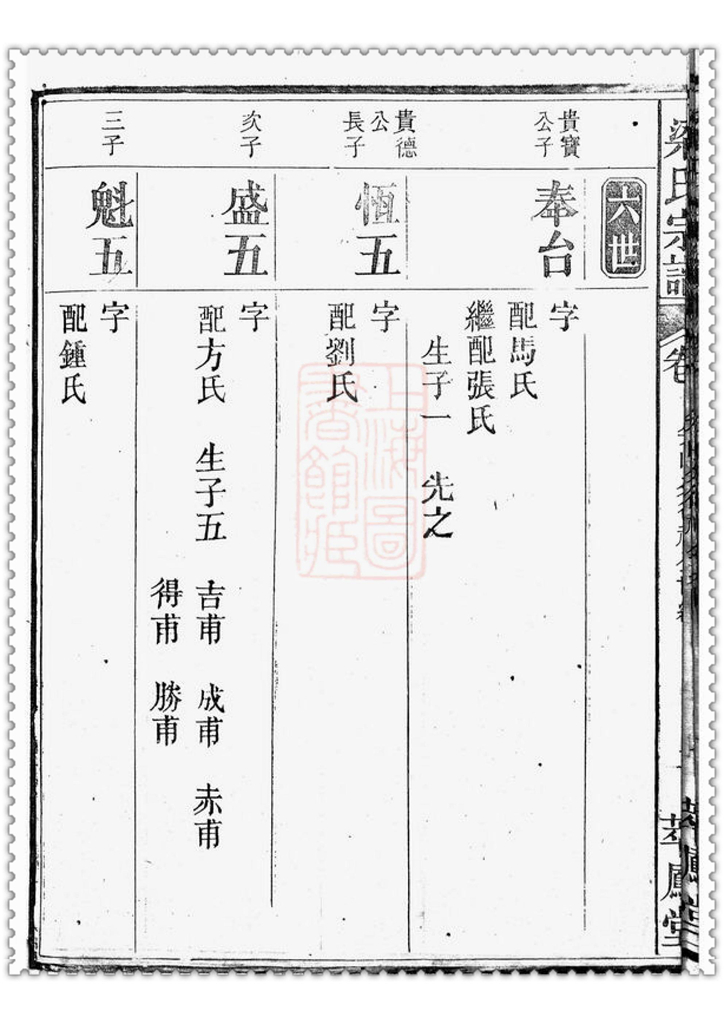 梁氏宗譜
卷
萃鳳堂
六世
貴寶
公子
奉台
字
配馬氏
繼配張氏
生子一 先之
貴德
公
長子
恆五
字
配劉氏
次子
盛五
字
配方氏 生子五 吉甫 成甫 赤甫
得甫 勝甫
三子
魁五
字
配鍾氏
上海圖
書館藏